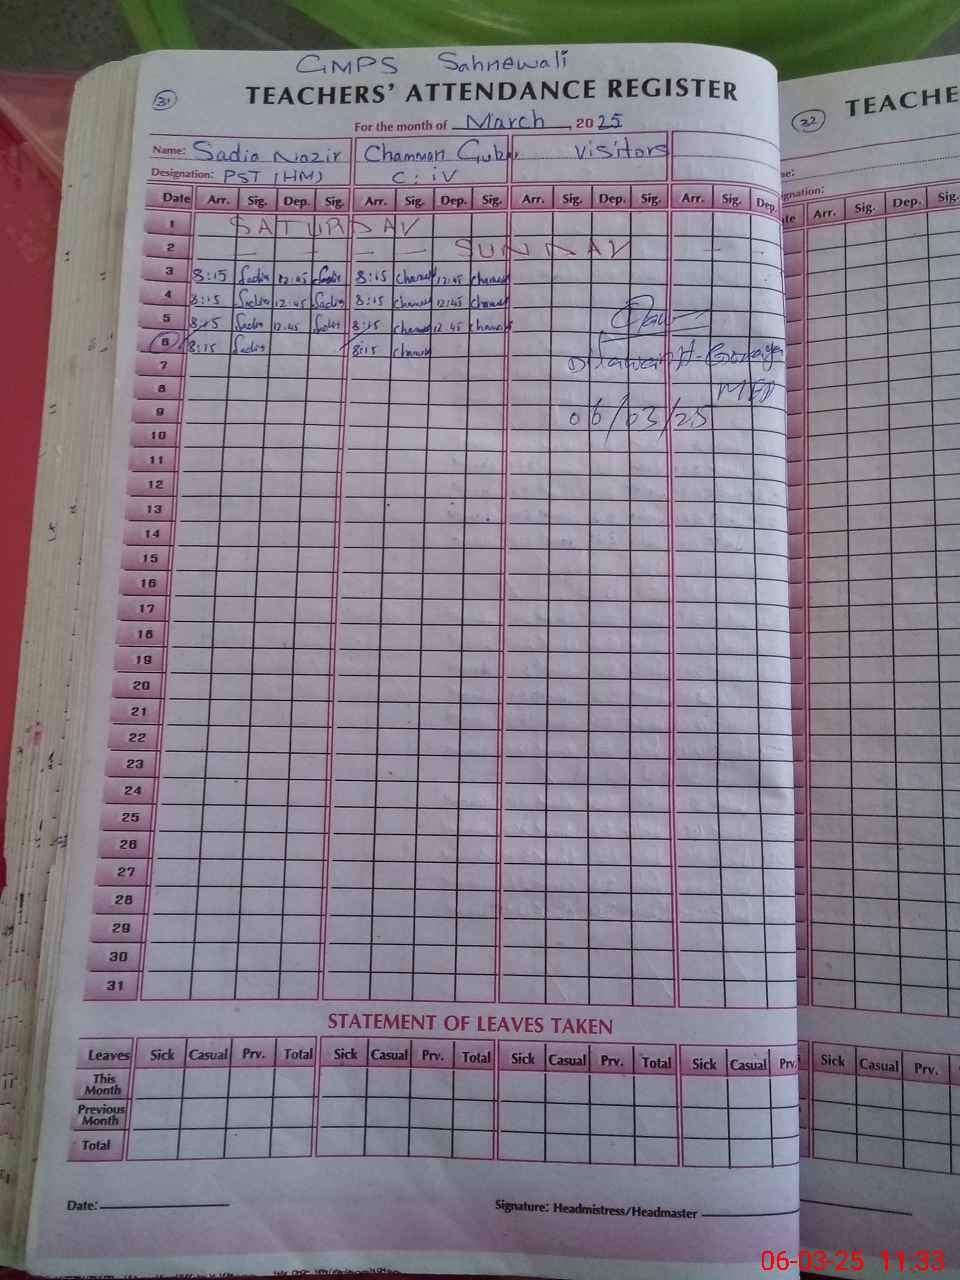 GMPS Sahnewali
31 TEACHERS' ATTENDANCE REGISTER
For the month of March, 2025
Name: Sadia Nazir Chamman Visitors
Designation: PST (HM) C: iV
Date Arr. Sig. Dep. Sig. Arr. Sig. Dep. Sig. Arr. Sig. Dep. Sig. Arr. Sig. Dep.
1 SATURDAY
2 SUNDAY
3 8:15 Sadia 12:45 Sadia 8:15 Cham 12:45 Cham
4 8:15 Sadia 12:45 Sadia 8:15 Cham 12:45 Cham
5 8:15 Sadia 12.45 Sadia 8:15 Cham 12.45 Cham
6 8:15 Sadia 8:15 Cham
7
8
9 06/03/25
10
11
12
13
14
15
16
17
18
19
20
21
22
23
24
25
26
27
28
29
30
31
STATEMENT OF LEAVES TAKEN
Leaves Sick Casual Prv. Total Sick Casual Prv. Total Sick Casual Prv. Total Sick Casual Prv.
This Month
Previous Month
Total
Date:
Signature: Headmistress/Headmaster
32 TEACHE
Arr. Sig. Dep. Sig.
Sick Casual Prv.
06-03-25 11:33